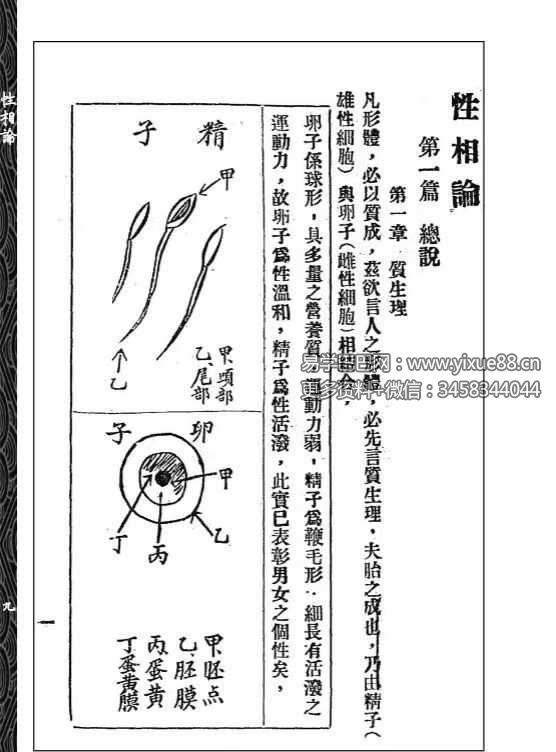 性相論
第一篇 總說
第一章 質生理
凡形體，必以質成，茲欲言人之形體，必先言質生理，夫胎之成也，乃由精子（
雄性細胞）與卵子（雌性細胞）相結合，
卵子係球形，具多量之營養質，運動力弱，精子爲鞭毛形，細長有活潑之
運動力，故卵子爲性溫和，精子爲性活潑，此實已表彰男女之個性矣，
精子
甲
乙
甲、頭部
乙、尾部
卵子
甲
乙
丙
丁
甲胚点
乙、胚膜
丙、蛋黄
丁蛋黄膜
一
性相論
九
易学巴巴网：www.yixue88.cn
更多资料+微信：3458344044